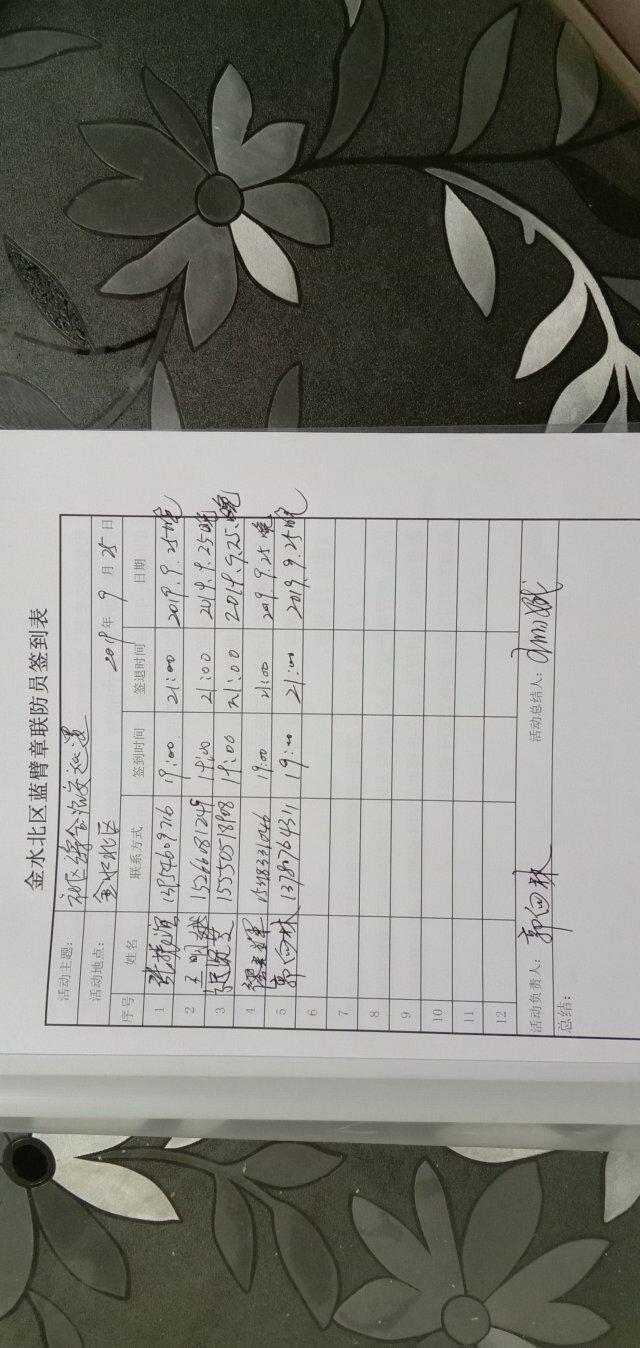 金水北区蓝臂章联防员签到表
活动主题： 社区综合治安巡逻
活动地点： 金水北区 2019年 9月 25日
序号 姓名 联系方式 签到时间 签退时间 日期
1 19:00 21:00 2019.9.25晚
2 王明 15266081249 19:00 21:00 2019.9.25晚
3 15550518908 19:00 21:00 2019.9.25.晚
4 19:00 21:00 2019.9.25晚
5 郭向林 19:00 21:00 2019.9.25晚
6
7
8
9
10
11
12
活动负责人： 郭向林 活动总结人：
总结：